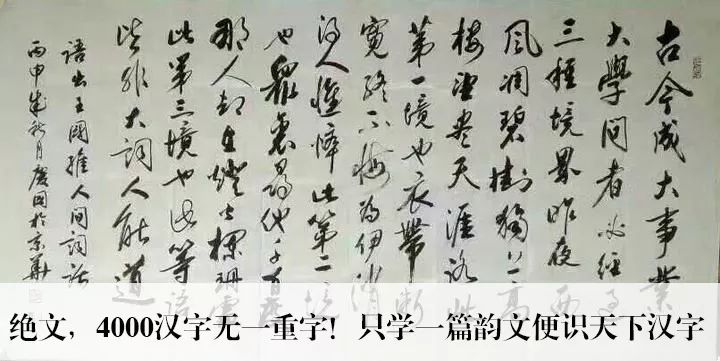 古今成大事業
大學问者必经过
三種境界昨夜西
风凋碧樹獨上高
楼望尽天涯路此
第一境也衣带渐
宽终不悔为伊消
得人憔悴此第二境
也眾裏尋他千百度
那人却在燈火阑珊處
此第三境也此等語
皆非大詞人能道
語出王國維人间詞話
丙申年秋月慶国於京華
绝文，4000汉字无一重字！只学一篇韵文便识天下汉字